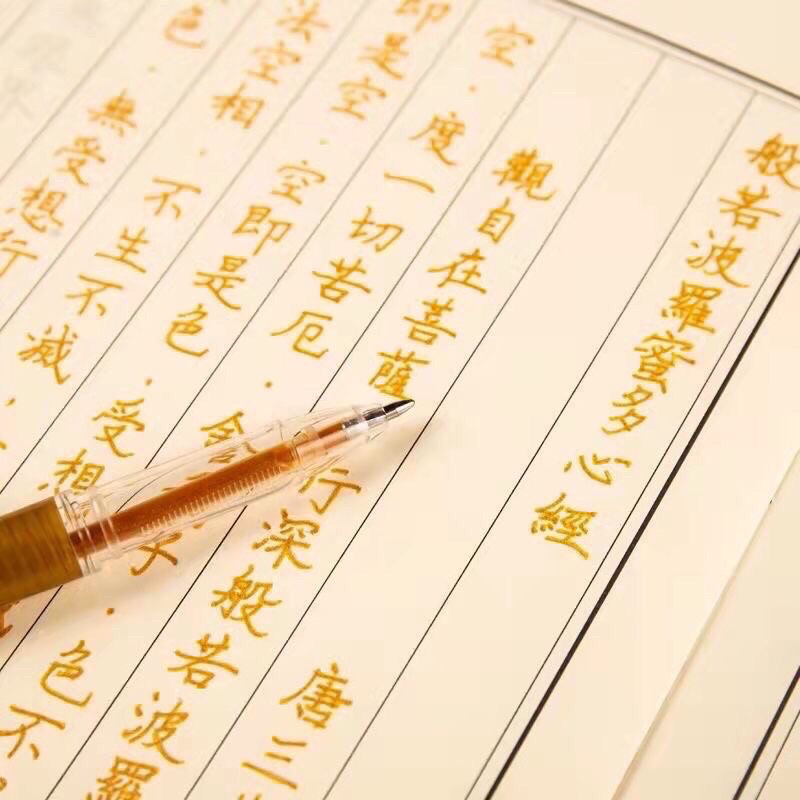 般若波羅蜜多心經
唐三
觀自在菩薩行深般若波羅
空·度一切苦厄·舍子·色不
即是空·空即是色·受想
法空相·不生不減·
色·無受想行